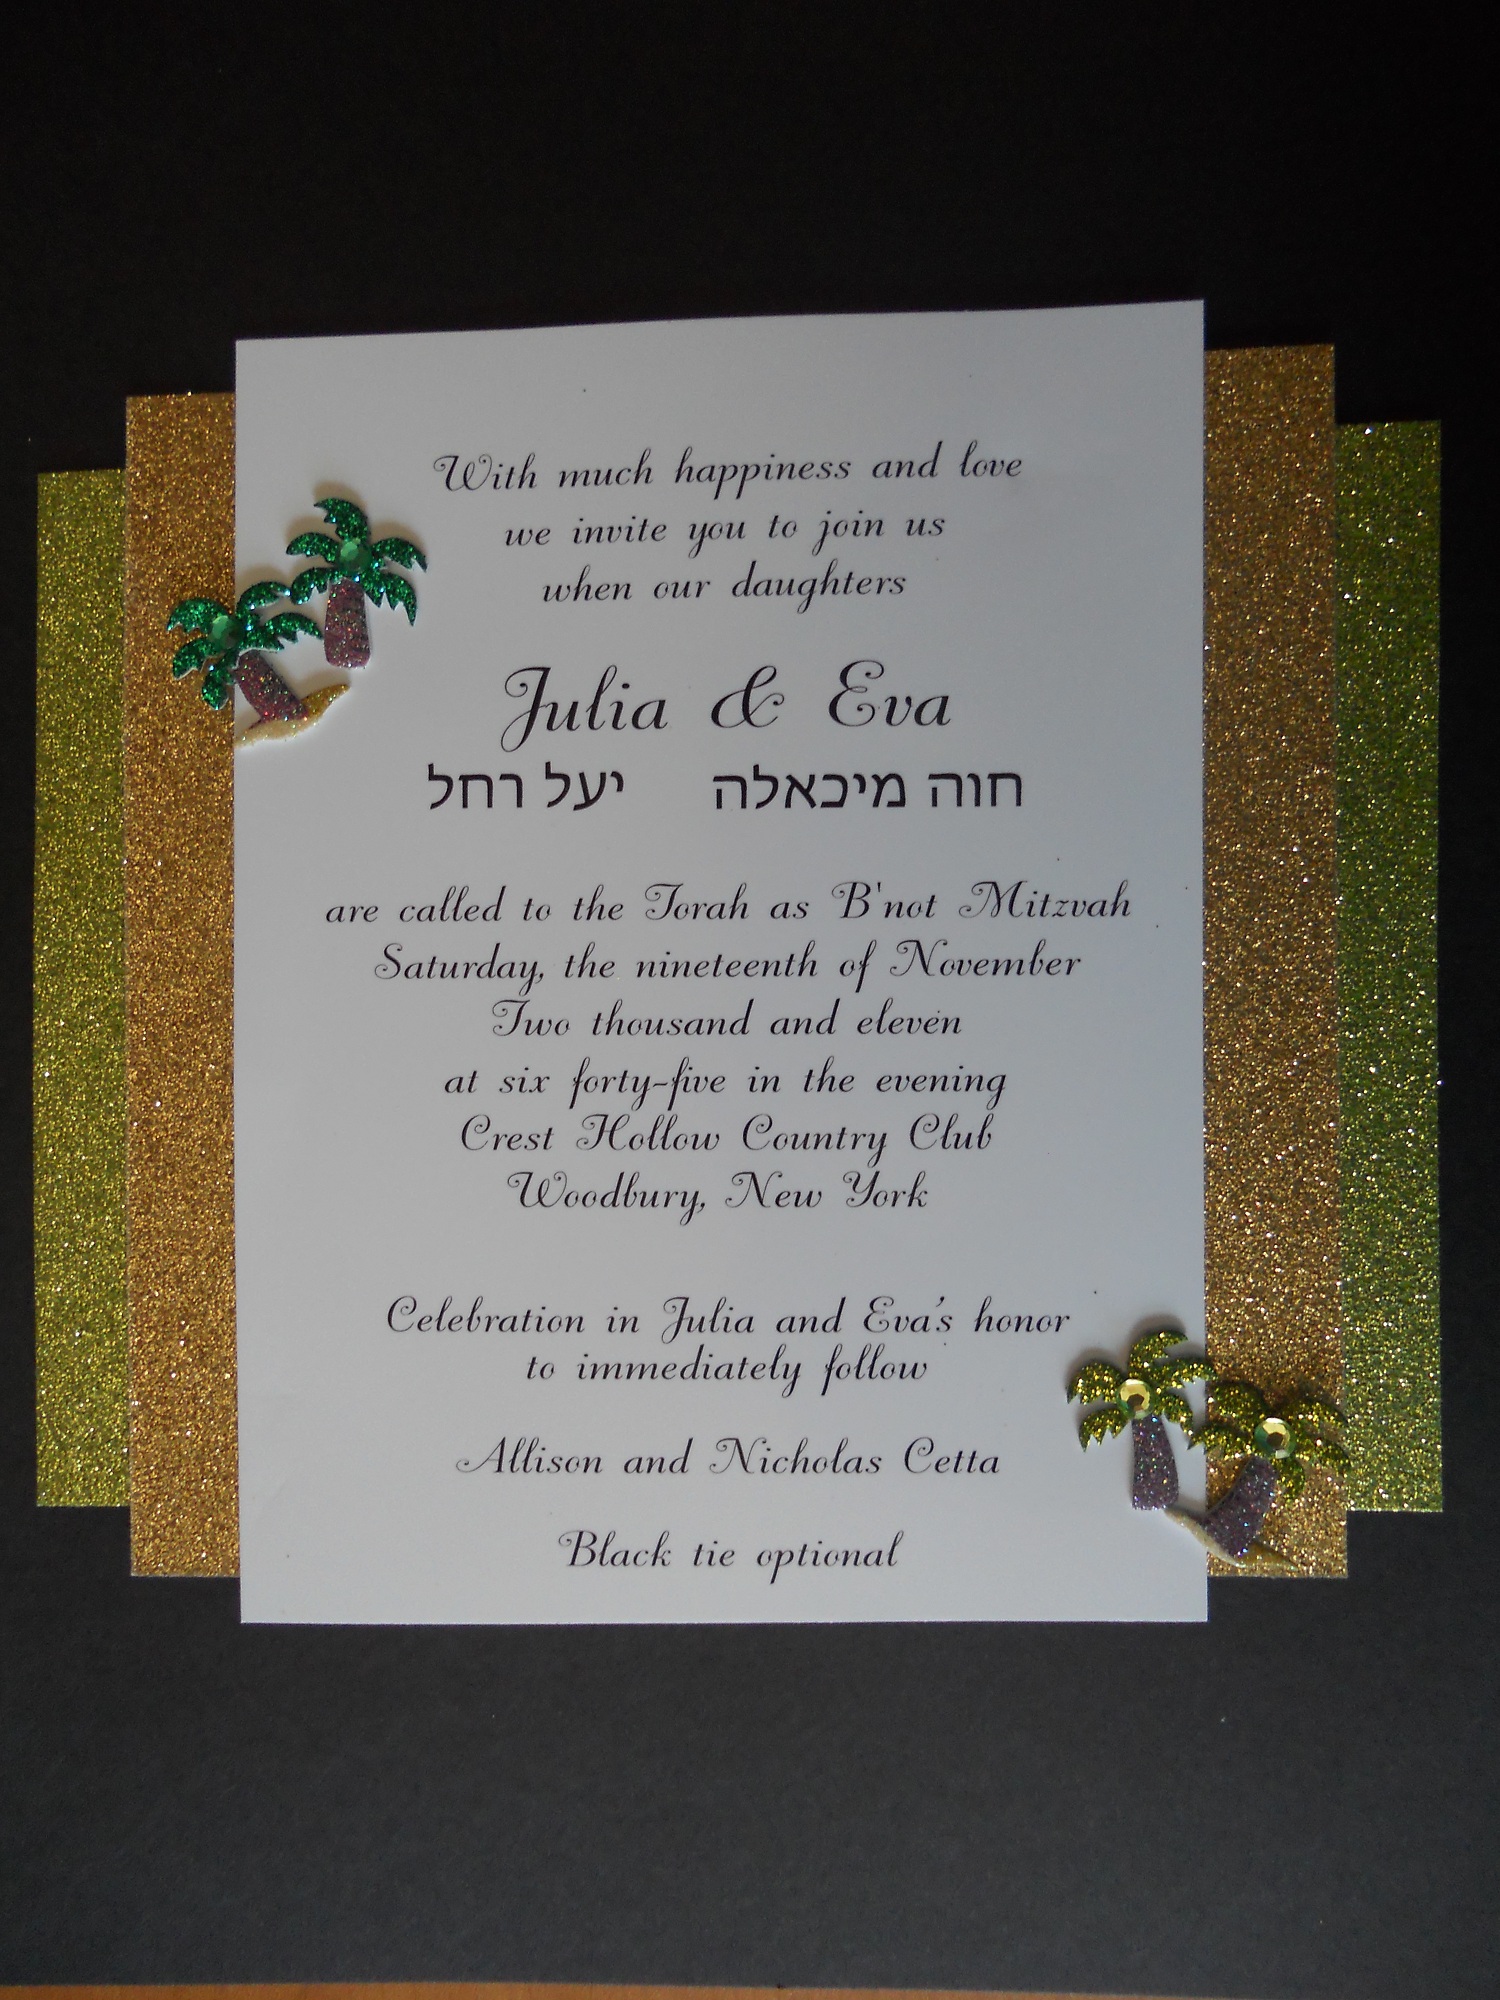 With much happiness and love
we invite you to join us
when our daughters
Julia & Eva
חוה מיכאלה יעל רחל
are called to the Torah as B'not Mitzvah
Saturday, the nineteenth of November
Two thousand and eleven
at six forty-five in the evening
Crest Hollow Country Club
Woodbury, New York
Celebration in Julia and Eva's honor
to immediately follow
Allison and Nicholas Cetta
Black tie optional